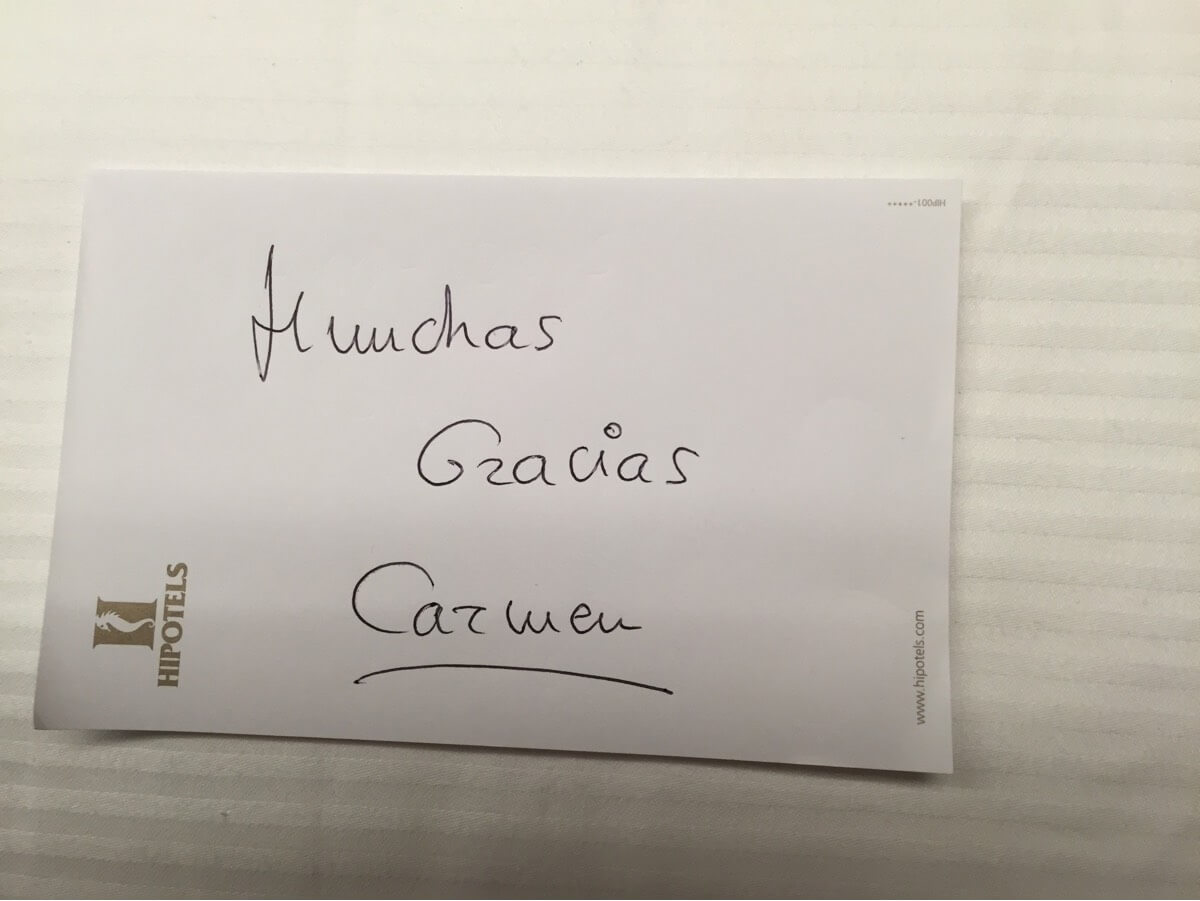 HIP001-+++++
Munchas
Gracias
Carmen
HIPOTELS
www.hipotels.com